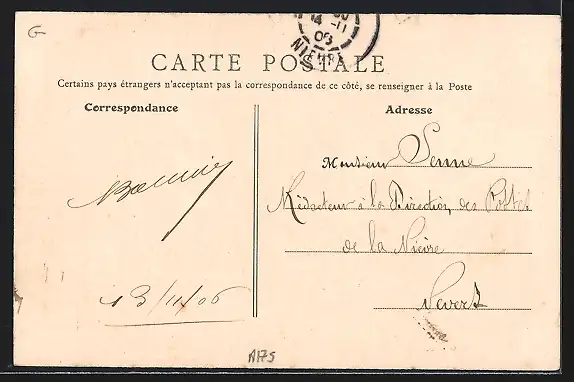 G
14 -11
06
NIEVRE
CARTE POSTALE
Certains pays étrangers n'acceptant pas la correspondance de ce côté, se renseigner à la Poste
Correspondance
Adresse
Monsieur Senne
Rédacteur à la Direction des Postes
de la Nièvre
Nevers
13/11/06
A175